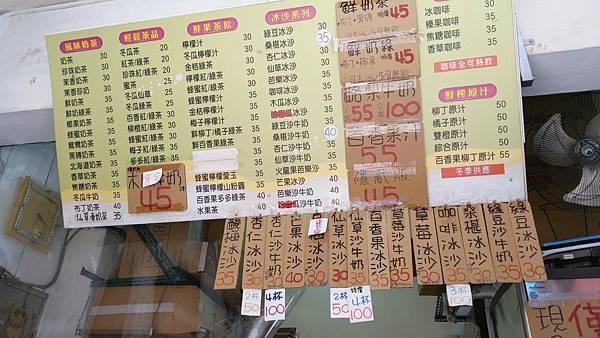 風味奶茶
奶茶 30
珍珠奶茶 35
茉香奶茶 30
茉香珍奶 35
鮮奶茶
鮮奶綠茶 35
椰果奶茶 35
蜂蜜奶茶 35
鴛鴦奶茶 35
黑磚奶茶 35
北海道奶茶 35
香草奶茶 35
焦糖奶茶 35
冬瓜牛奶 35
布丁奶茶 40
仙草凍奶茶 35
輕鬆茶品
冬瓜茶 20
紅茶/綠茶 20
珍珠紅/綠茶 30
蜜茶 25
冬瓜仙草 25
冬瓜綠茶 25
百香紅/綠茶 30
檸檬紅/綠茶 30
蜂蜜紅/綠茶 30
梅子紅/綠茶 30
多多紅/綠茶
45
鮮果茶飲
檸檬汁 30
金桔汁 30
金桔檸檬 35
檸檬紅/綠 35
蜂蜜檸檬汁 35
金桔檸檬汁 35
柳丁綠茶 35
橘子綠茶 35
鮮柳丁/橘子綠茶 35
鮮百香果綠茶 35
蜂蜜檸檬愛玉 40
蜂蜜檸檬山粉圓 40
百香果多多綠茶 40
水果茶 40
冰沙系列
綠豆冰沙 30
桑椹冰沙 35
杏仁冰沙 30
仙草冰沙 30
芭樂冰沙 35
咖啡冰沙 35
木瓜冰沙 35
綠豆沙牛奶 35
桑椹沙牛奶 40
杏仁沙牛奶 35
仙草沙牛奶 35
火龍果芭樂沙 35
芒果冰沙 40
芭樂沙牛奶 35
鮮奶茶
45
鮮奶綠
45
酪梨牛奶
55 2杯 100
百香果汁
55
45
冰咖啡 35
榛果咖啡 35
焦糖咖啡 35
香草咖啡 35
咖啡全可熱飲
鮮榨原汁
柳丁原汁 50
橘子原汁 50
雙橙原汁 50
綜合原汁 50
百香果柳丁原汁 55
冬季供應
酸梅冰沙 35
杏仁冰沙 30
杏仁沙牛奶 35
芒果冰沙 40
冰沙 30
仙草冰沙 30
仙草沙牛奶 35
百香果冰沙 35
草莓沙牛奶 35
草莓冰沙 40
咖啡冰沙 35
桑椹冰沙 35
綠豆沙牛奶 35
綠豆冰沙 30
2杯 50
4杯 100
2杯 50
特價 4杯 100
3杯 100
現